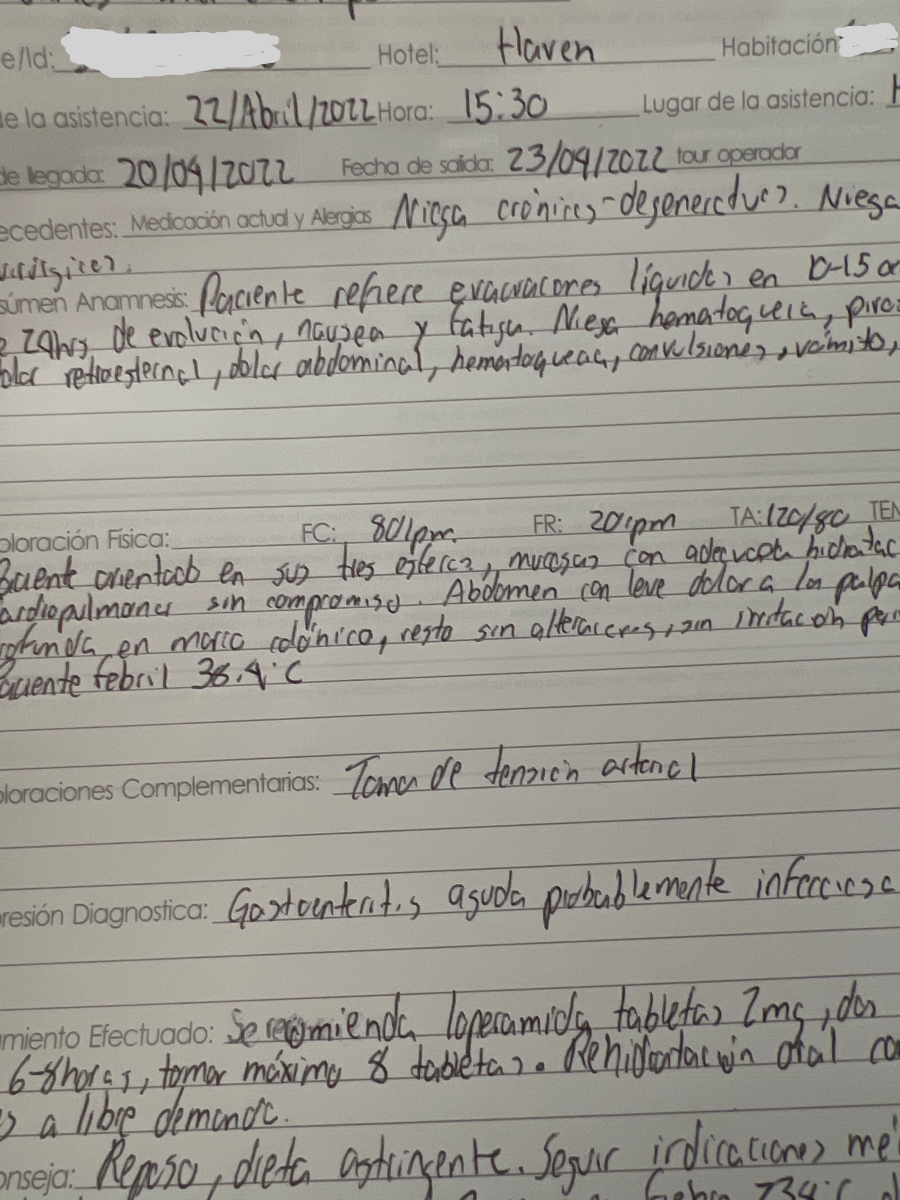 e/Id: Hotel: Haven Habitación
de la asistencia: 22/Abril/2022 Hora: 15:30 Lugar de la asistencia: H
de llegada: 20/04/2022 Fecha de salida: 23/04/2022 tour operador
ecedentes: Medicación actual y Alergias Niega crónicos-degenerativos. Niega
súmen Anamnesis: Paciente refiere evacuaciones líquidas en 10-15 oc
24hrs de evolución, nausea y fatiga. Niega hematoquecia, piro
olor retroesternal, dolor abdominal, hematoquecia, convulsiones, vómito,
ploración Física: FC: 80lpm FR: 20rpm TA: 120/80 TEM
Paciente orientado en sus tres esferas, mucosas con adecuada hidratac
ardiopulmonar sin compromiso. Abdomen con leve dolor a la palpa
rofunda en marco colónico, resto sin alteraciones, sin irritación per
Paciente febril 38.4°C
ploraciones Complementarias: Toma de tensión arterial
resión Diagnostica: Gastroenteritis aguda probablemente infecciosa
amiento Efectuado: Se recomienda loperamida tabletas 2mg, dos
6-8horas, tomar máximo 8 tabletas. Rehidratación oral co
a libre demanda.
onseja: Reposo, dieta astringente. Seguir indicaciones mé